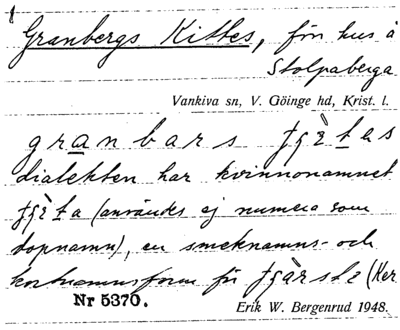 Granbergs Kittes, förr hus å
Stolpaberga
Vankiva sn, V. Göinge hd, Krist. l.
granbars
dialekten har kvinnonamnet
(användes ej numera som
dopnamn), en smeknamns- och
kortnamnsform för (Ker
Nr 5370.
Erik W. Bergenrud 1948.